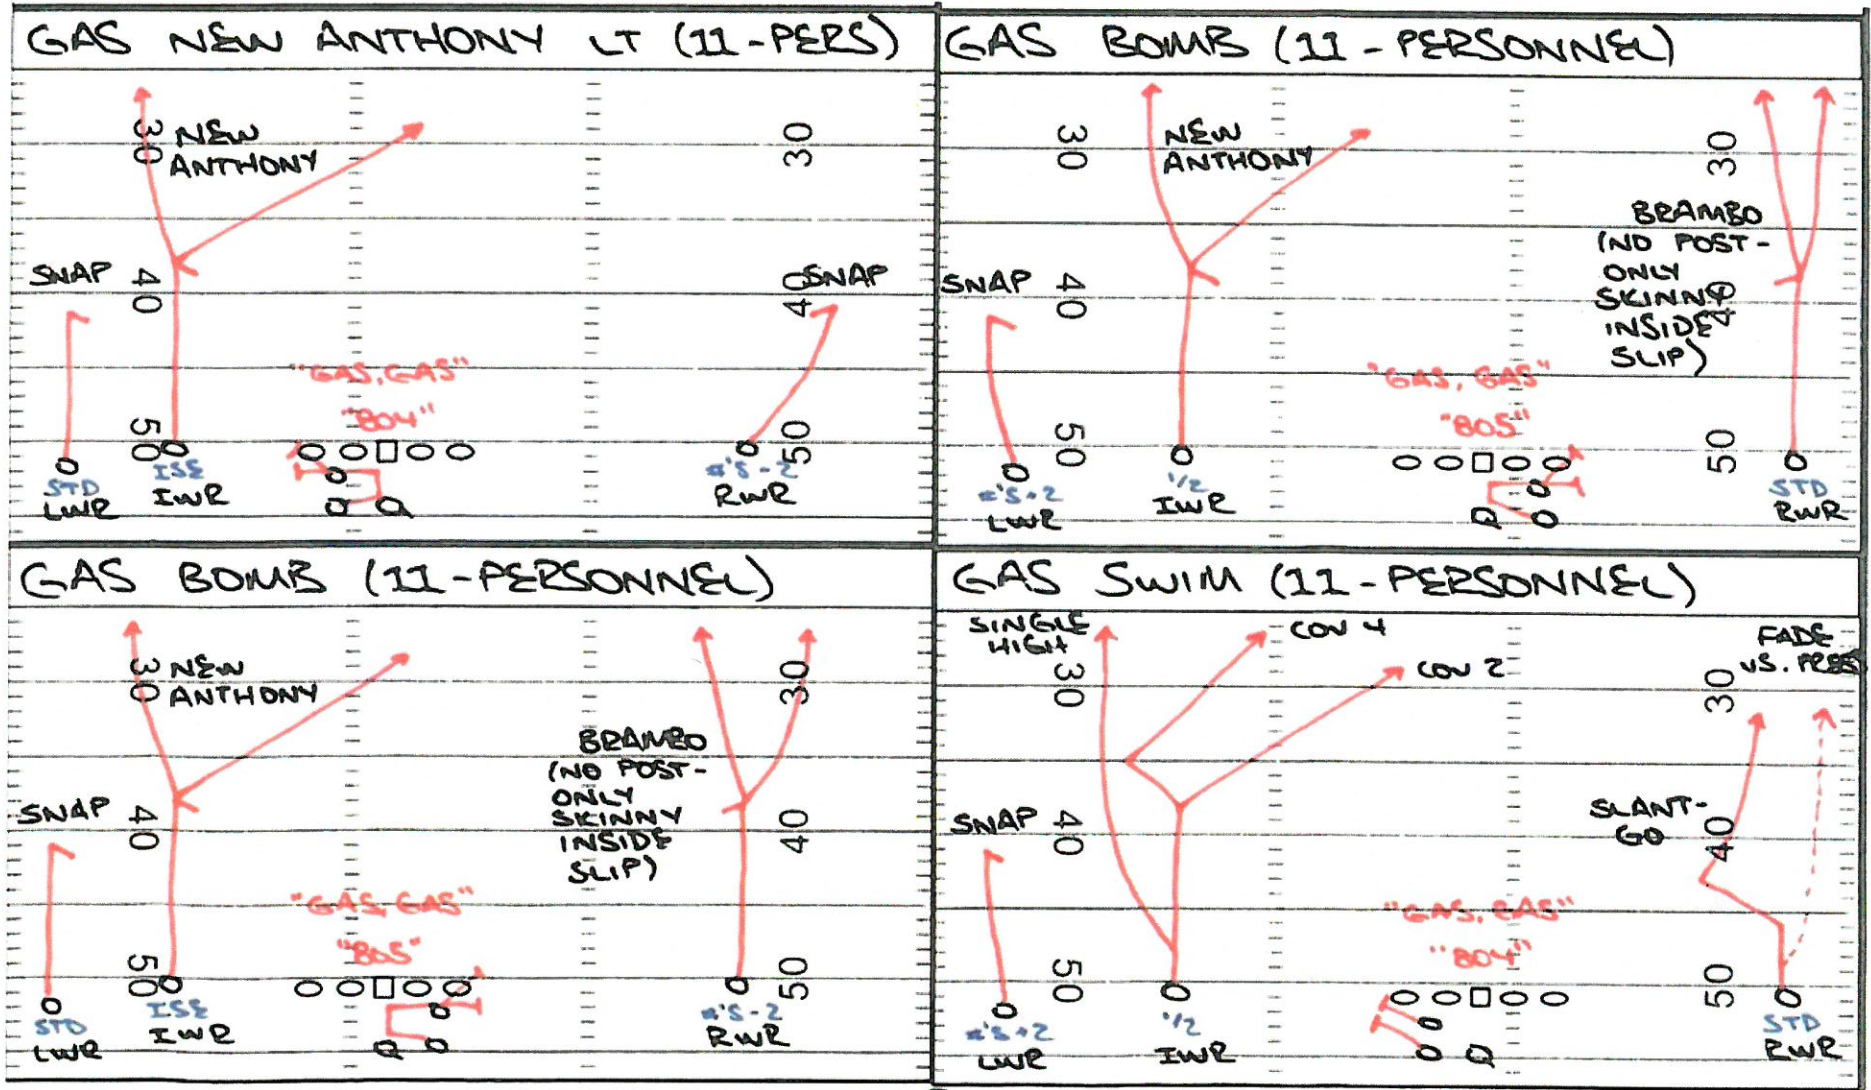 GAS NEW ANTHONY LT (11-PERS)
30 NEW
ANTHONY
30
SNAP 40
40 SNAP
"GAS, GAS"
"804"
50
50
STD
LWR
ISE
IWR
#'S-2
RWR
Q
GAS BOMB (11-PERSONNEL)
30
NEW
ANTHONY
30
BRAMBO
(NO POST-
ONLY
SKINNY
INSIDE
SLIP)
SNAP 40
40
"GAS, GAS"
"805"
50
50
#'S+2
LWR
1/2
IWR
Q
STD
RWR
GAS BOMB (11-PERSONNEL)
30 NEW
ANTHONY
30
BRAMBO
(NO POST-
ONLY
SKINNY
INSIDE
SLIP)
SNAP 40
40
"GAS, GAS"
"805"
50
50
STD
LWR
ISE
IWR
Q
#'S-2
RWR
GAS SWIM (11-PERSONNEL)
SINGLE
HIGH
COV 4
COV 2
FADE
VS. PRESS
30
30
SLANT-
GO
SNAP 40
40
"GAS, GAS"
"804"
50
50
#'S+2
LWR
1/2
IWR
Q
STD
RWR